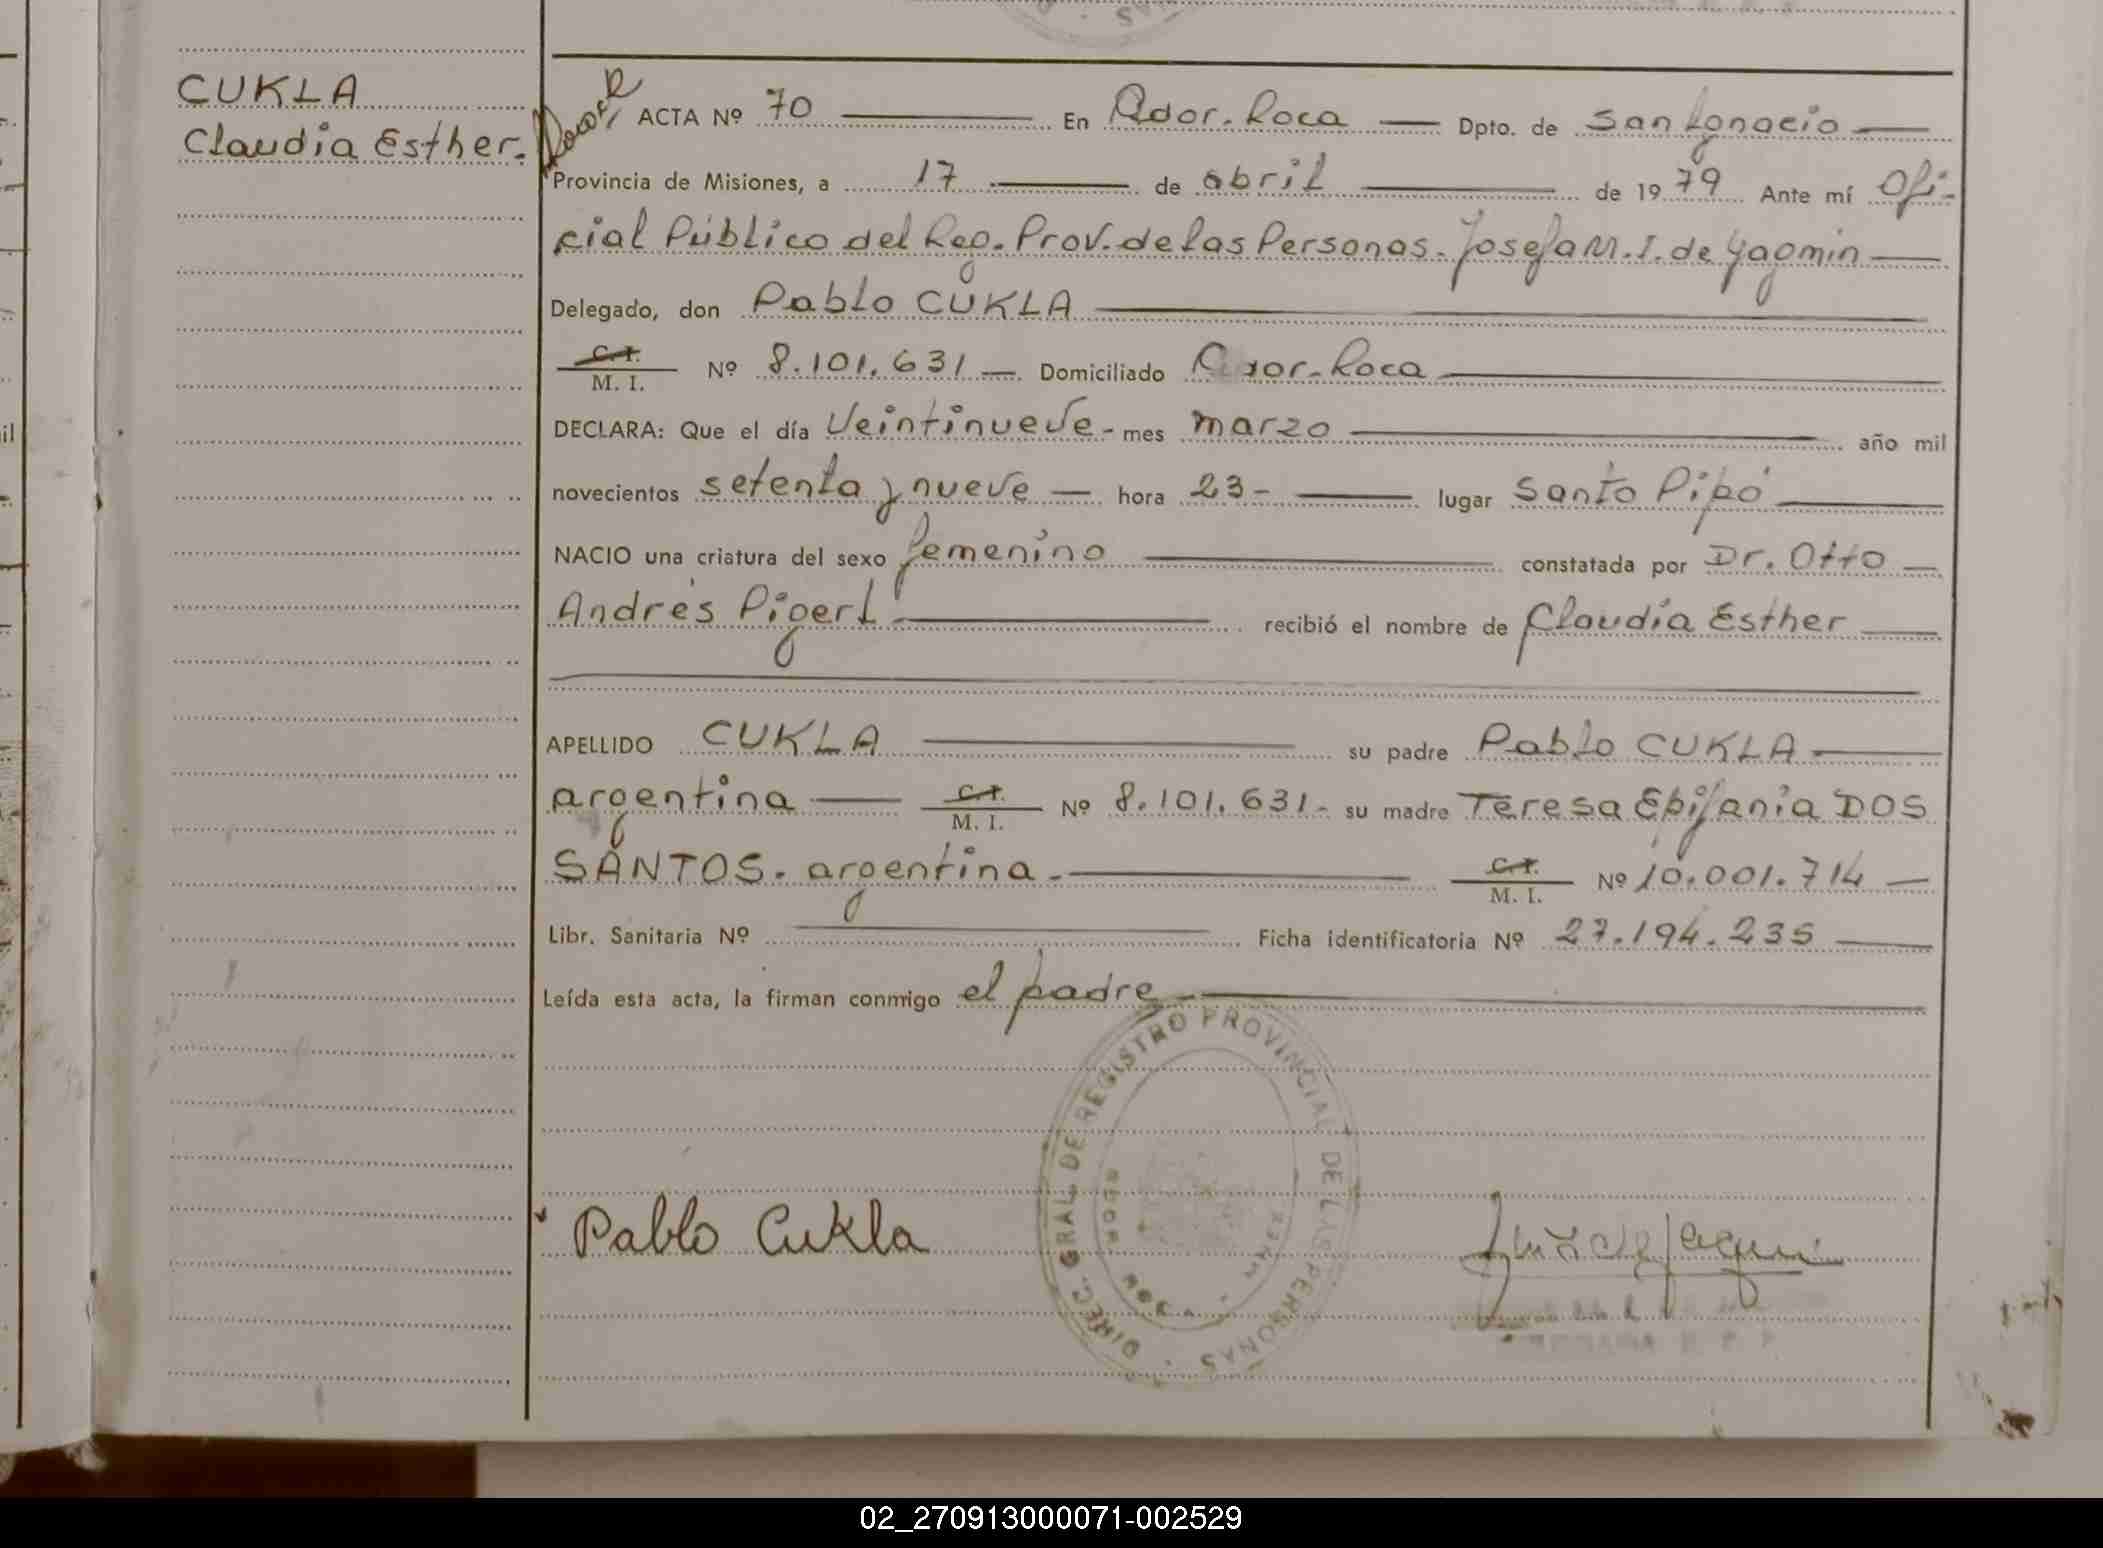 CUKLA
Claudia Esther.
ACTA Nº 70 En Gdor. Roca Dpto. de San Ignacio
Provincia de Misiones, a 17 de abril de 1979 Ante mí Ofi-
cial Público del Reg. Prov. de las Personas. Josefa M. I. de Yagmin
Delegado, don Pablo CUKLA
C. I.
M. I. Nº 8.101.631 Domiciliado Gdor. Roca
DECLARA: Que el día Veintinueve - mes marzo año mil
novecientos setenta y nueve hora 23- lugar Santo Pipó
NACIO una criatura del sexo femenino constatada por Dr. Otto
Andrés Pigerl recibió el nombre de Claudia Esther
APELLIDO CUKLA su padre Pablo CUKLA
argentina C. I. M. I. Nº 8.101.631- su madre Teresa Epifania DOS
SANTOS. argentina. C. I. M. I. Nº 10.001.714
Libr. Sanitaria Nº Ficha identificatoria Nº 27.194.235
Leída esta acta, la firman conmigo el padre
DIREC. GRAL. DE REGISTRO PROVINCIAL DE LAS PERSONAS
Pablo Cukla
02_270913000071-002529